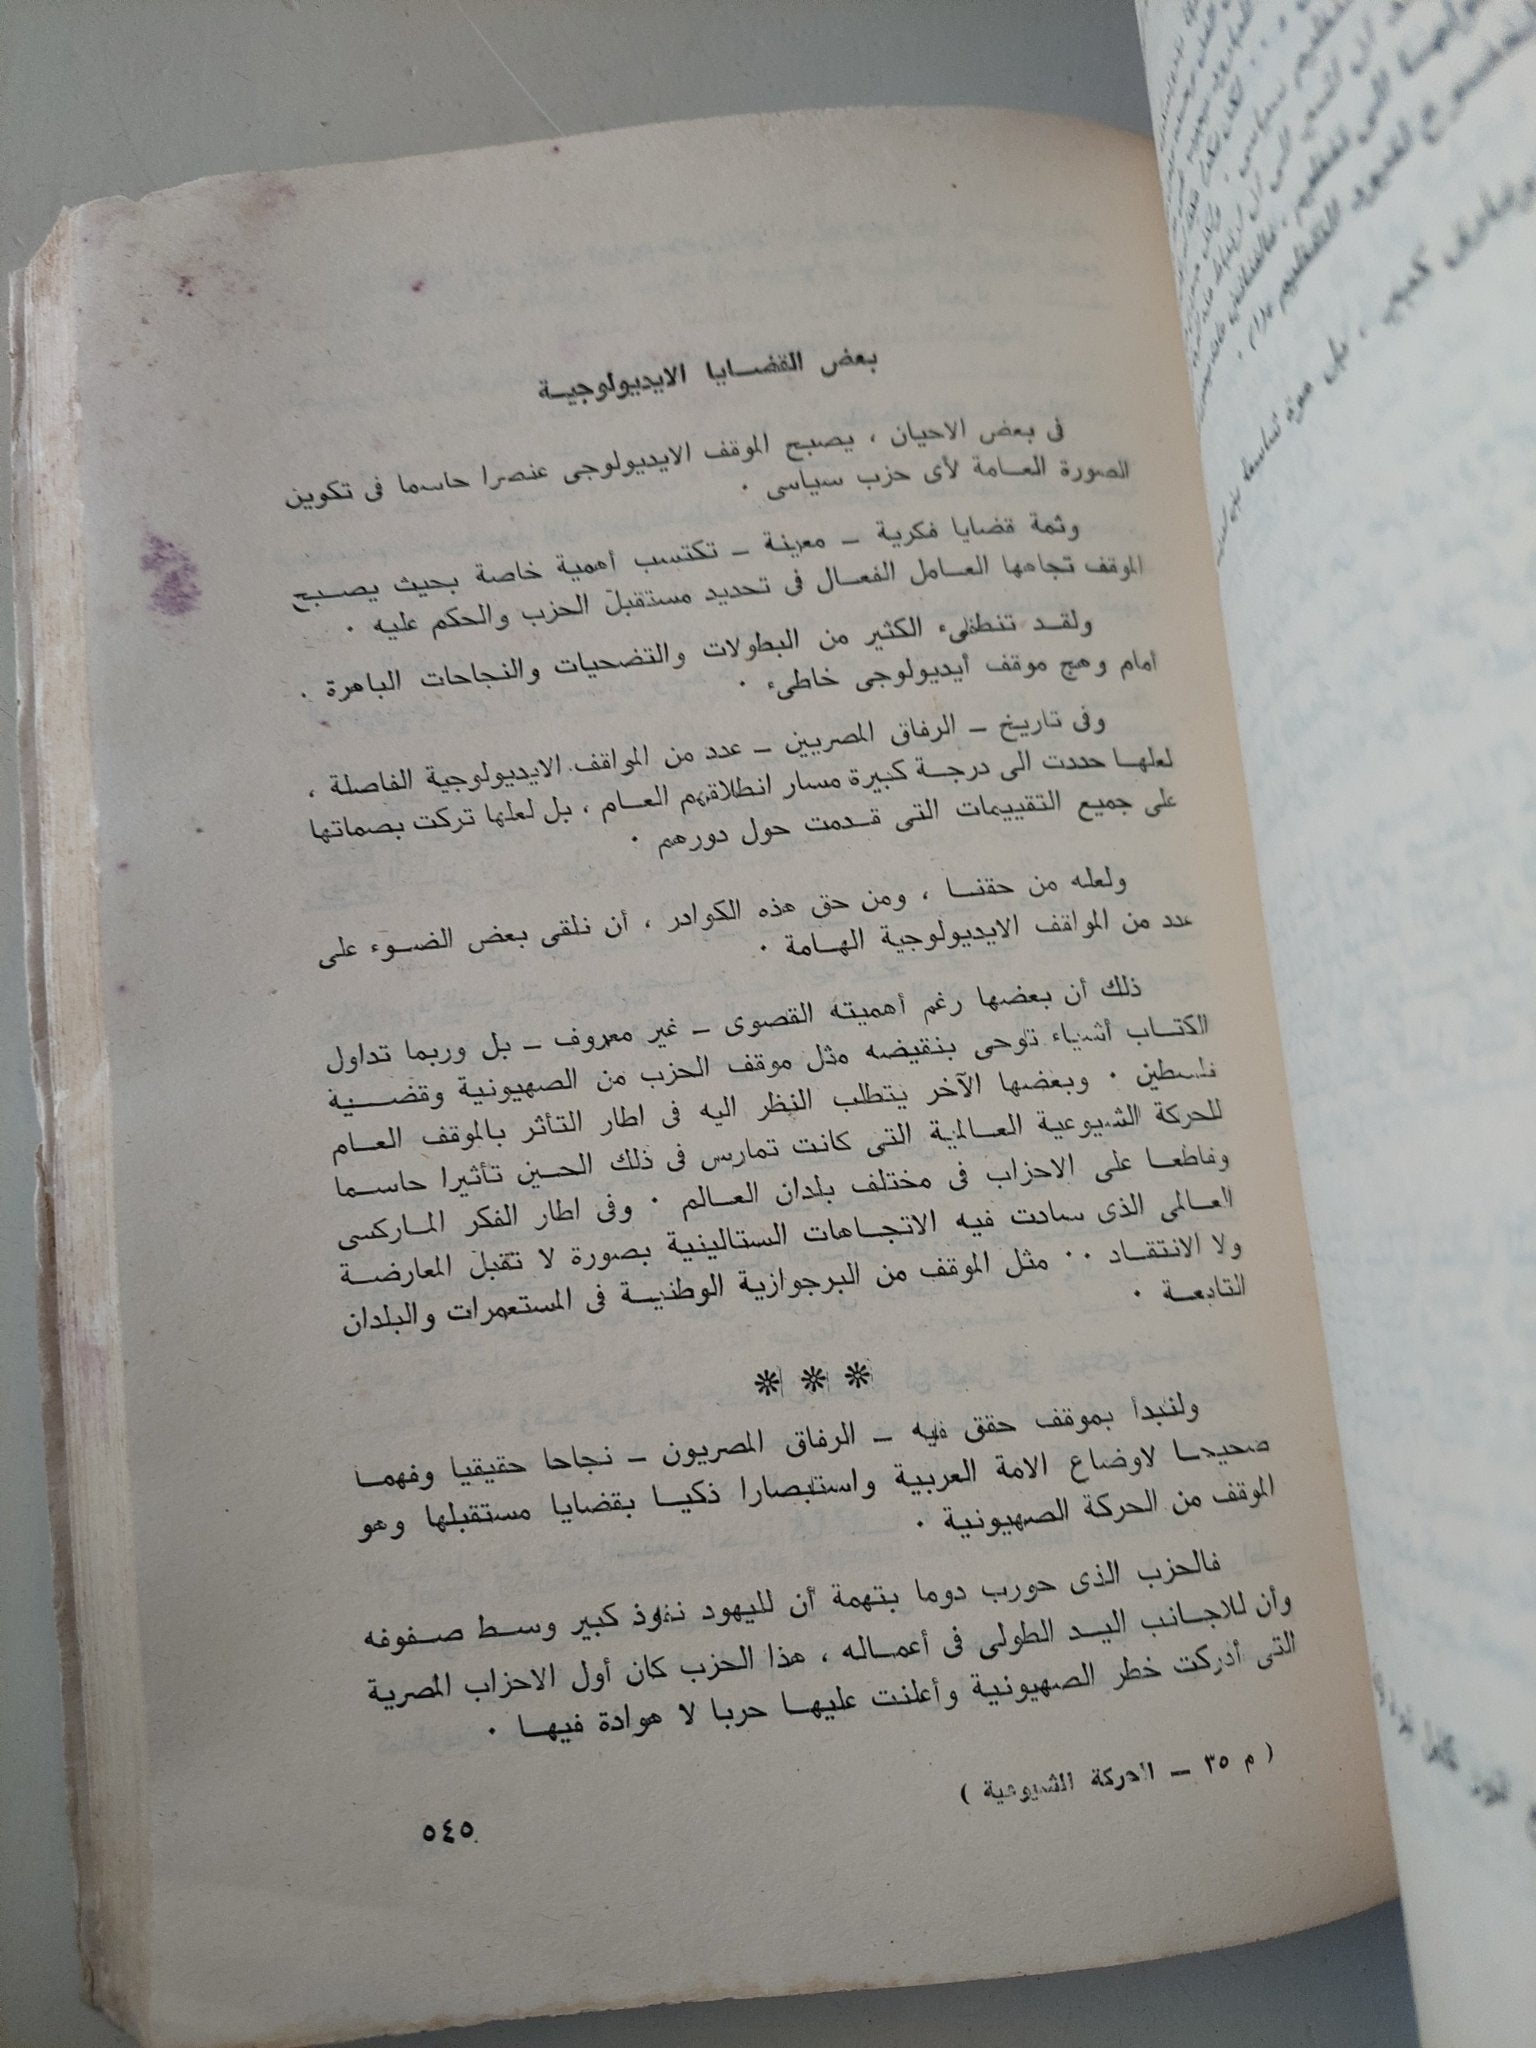 بعض القضايا الايديولوجية
فى بعض الاحيان ، يصبح الموقف الايديولوجى عنصرا حاسما فى تكوين
الصورة العامة لأى حزب سياسى ٠
وثمة قضايا فكرية – معينة – تكتسب أهمية خاصة بحيث يصبح
الموقف تجاهها العامل الفعال فى تحديد مستقبل الحزب والحكم عليه ٠
ولقد تنطفىء الكثير من البطولات والتضحيات والنجاحات الباهرة ٠
أمام وهج موقف أيديولوجى خاطىء ٠
وفى تاريخ – الرفاق المصريين – عدد من المواقف الايديولوجية الفاصلة ،
لعلها حددت الى درجة كبيرة مسار انطلاقهم العام ، بل لعلها تركت بصماتها
على جميع التقييمات التى قدمت حول دورهم ٠
ولعله من حقنا ، ومن حق هذه الكوادر ، أن نلقى بعض الضوء على
عدد من المواقف الايديولوجية الهامة ٠
ذلك أن بعضها رغم أهميته القصوى – غير معروف – بل وربما تداول
الكتاب أشياء توحى بنقيضه مثل موقف الحزب من الصهيونية وقضية
فلسطين ٠ وبعضها الآخر يتطلب النظر اليه فى اطار التأثر بالموقف العام
للحركة الشيوعية العالمية التى كانت تمارس فى ذلك الحين تأثيرا حاسما
وقاطعا على الاحزاب فى مختلف بلدان العالم ٠ وفى اطار الفكر الماركسى
العالمى الذى سادت فيه الاتجاهات الستالينية بصورة لا تقبل المعارضة
ولا الانتقاد ٠٠ مثل الموقف من البرجوازية الوطنية فى المستعمرات والبلدان
التابعة ٠
❊ ❊ ❊
ولنبدأ بموقف حقق فيه – الرفاق المصريون – نجاحا حقيقيا وفهما
صحيحا لاوضاع الامة العربية واستبصارا ذكيا بقضايا مستقبلها وهو
الموقف من الحركة الصهيونية ٠
فالحزب الذى حورب دوما بتهمة أن لليهود نفوذ كبير وسط صفوفه
وأن للاجانب اليد الطولى فى أعماله ، هذا الحزب كان أول الاحزاب المصرية
التى أدركت خطر الصهيونية وأعلنت عليها حربا لا هوادة فيها ٠
( م ٣٥ – الحركة الشيوعية )
٥٤٥